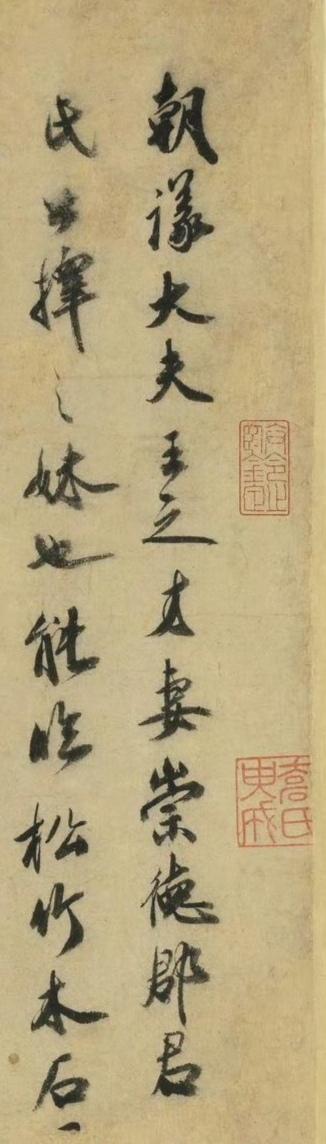 朝議大夫王之才妻崇德郡君
氏公擇之妹也能臨松竹木石
喬氏